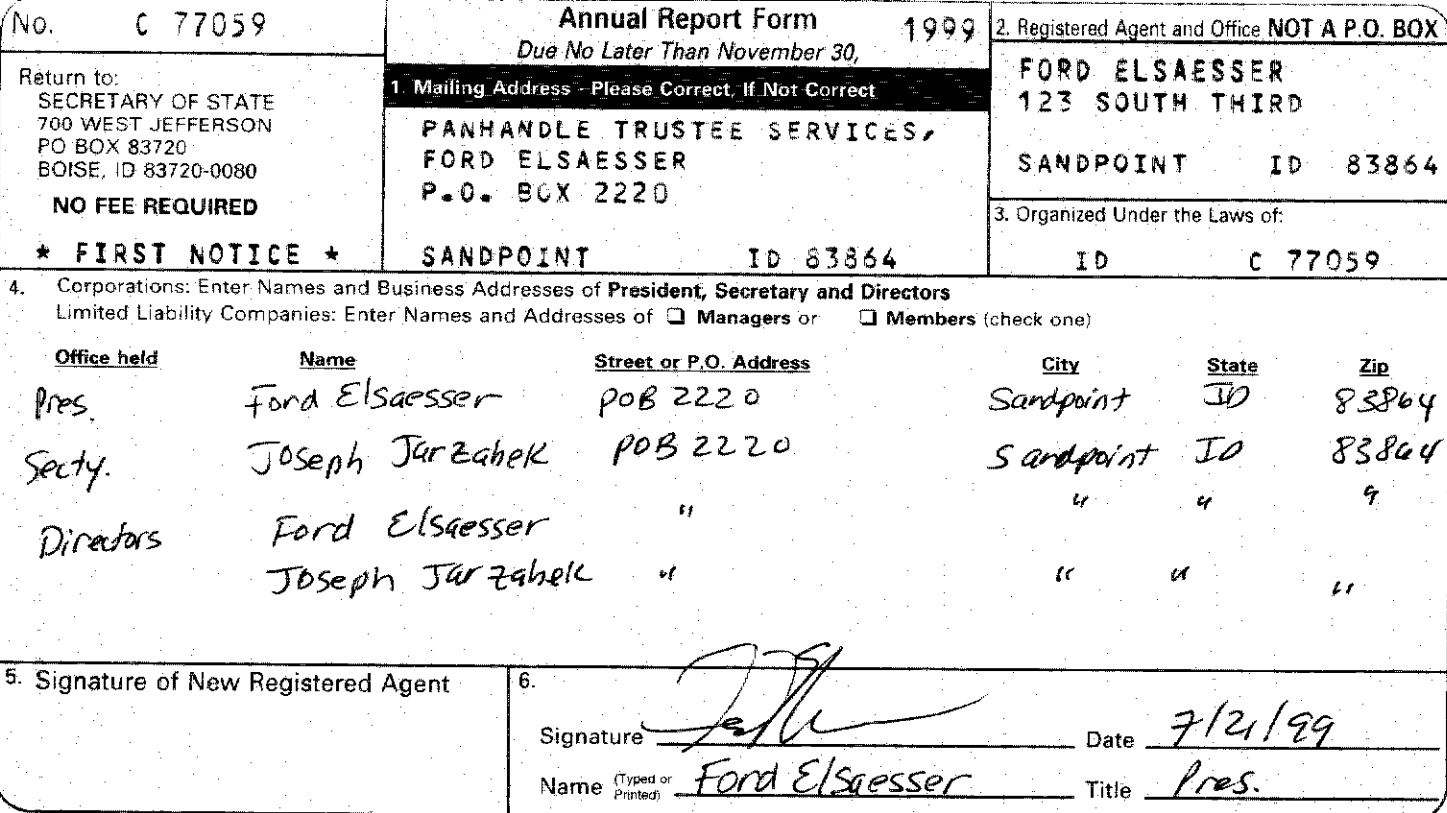 No. C 77059
Return to:
SECRETARY OF STATE
700 WEST JEFFERSON
PO BOX 83720
BOISE, ID 83720-0080
NO FEE REQUIRED
* FIRST NOTICE *
Annual Report Form 1999
Due No Later Than November 30,
1. Mailing Address - Please Correct, If Not Correct
PANHANDLE TRUSTEE SERVICES,
FORD ELSAESSER
P.O. BOX 2220
SANDPOINT ID 83864
2. Registered Agent and Office NOT A P.O. BOX
FORD ELSAESSER
123 SOUTH THIRD
SANDPOINT ID 83864
3. Organized Under the Laws of:
ID C 77059
4. Corporations: Enter Names and Business Addresses of President, Secretary and Directors
Limited Liability Companies: Enter Names and Addresses of ❑ Managers or ❑ Members (check one)
Office held Name Street or P.O. Address City State Zip
Pres. Ford Elsaesser POB 2220 Sandpoint ID 83864
Secty. Joseph Jarzabek POB 2220 Sandpoint ID 83864
Directors Ford Elsaesser " " " "
Joseph Jarzabek " " " "
5. Signature of New Registered Agent
6.
Signature Date 7/21/99
Name (Typed or Printed) Ford Elsaesser Title Pres.